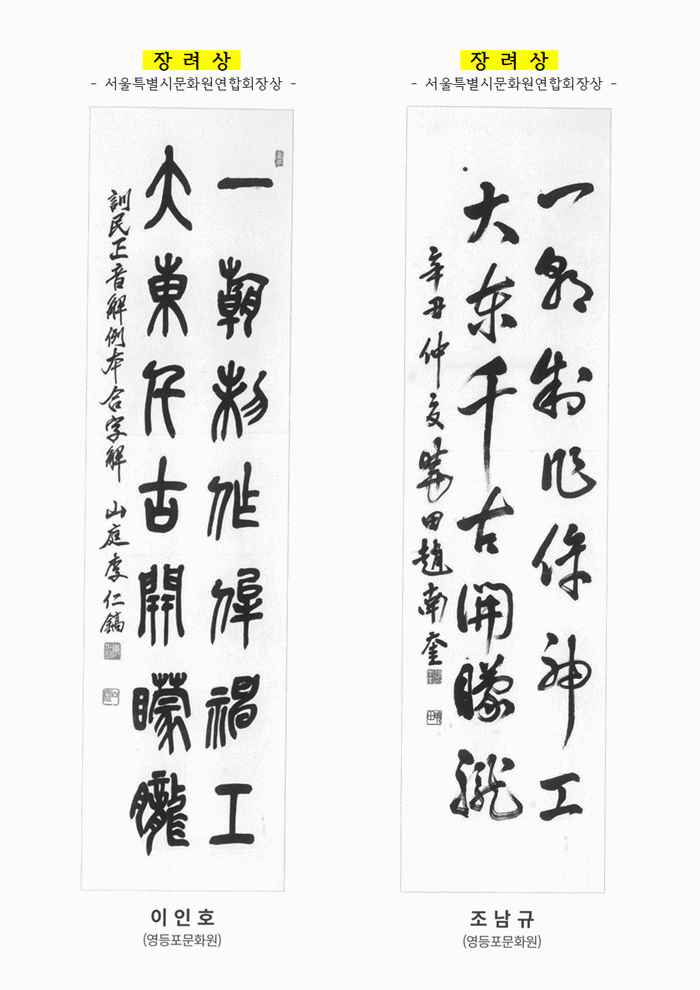 장려상
- 서울특별시문화원연합회장상 -
一朝制作侔神工
大東千古開矇矓
訓民正音解例本合字解 山庭李仁鎬
이인호
(영등포문화원)
장려상
- 서울특별시문화원연합회장상 -
一朝制作侔神工
大東千古開矇矓
辛丑仲夏 田趙南奎
조남규
(영등포문화원)